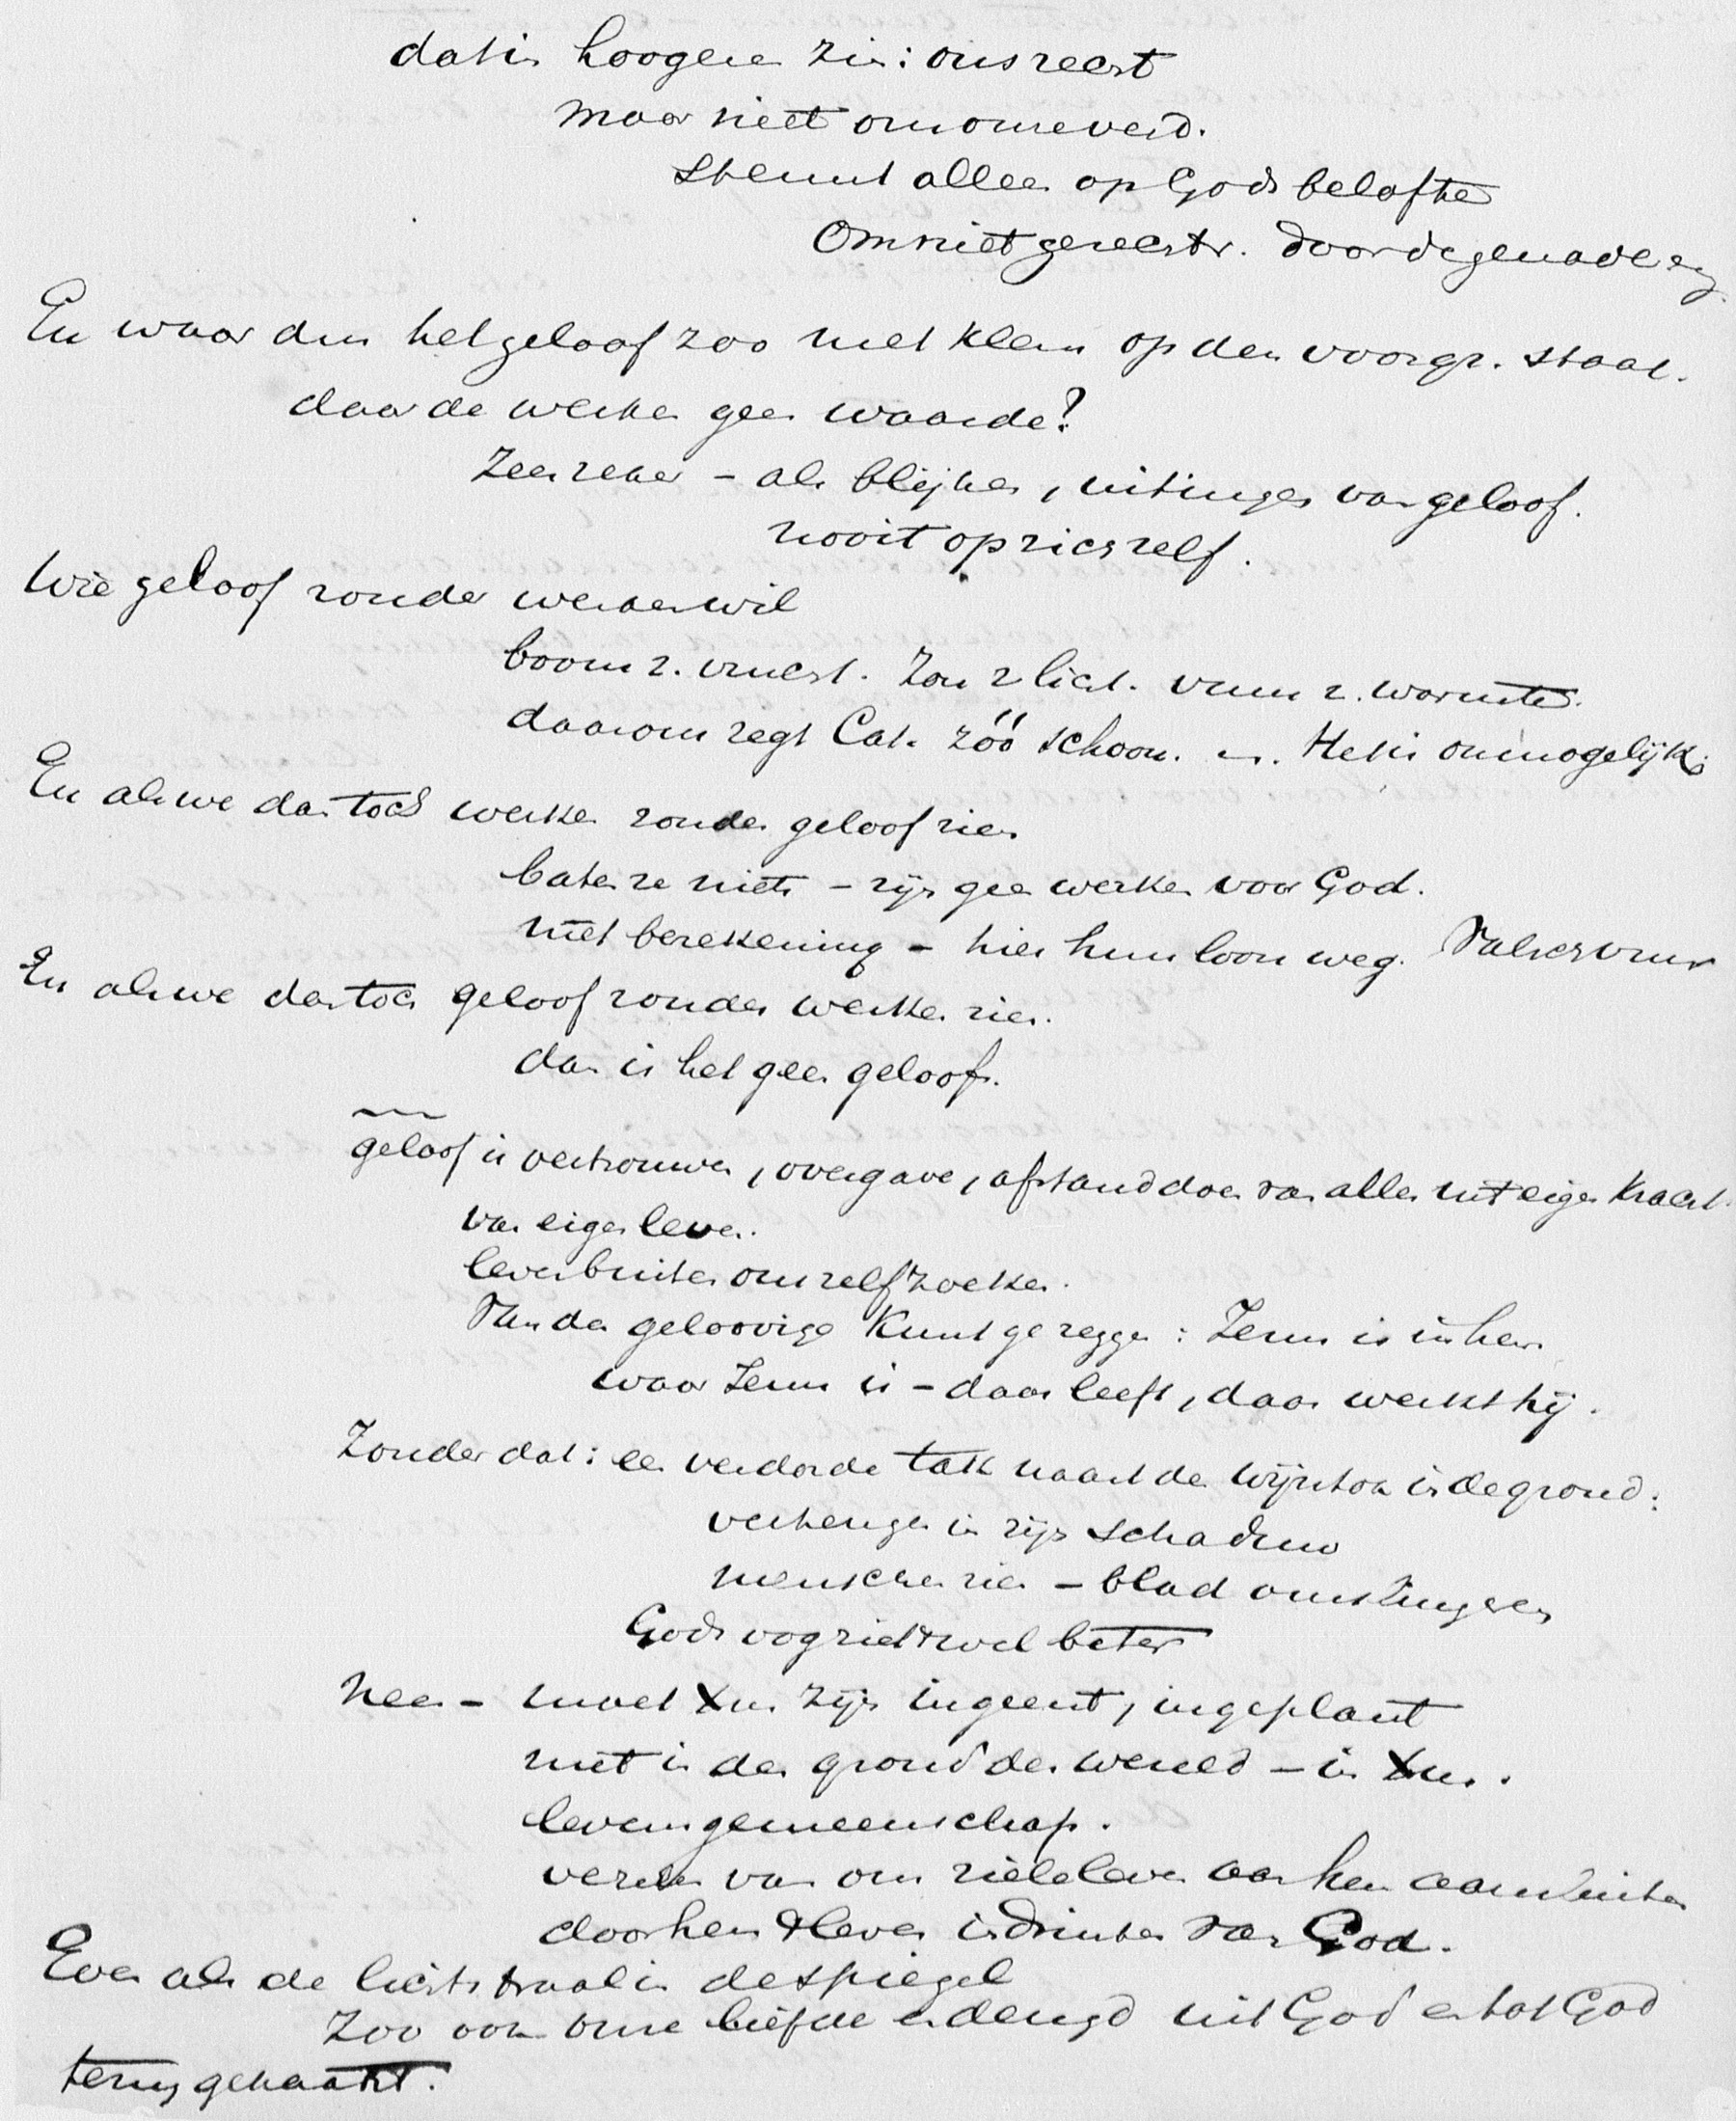 dat in hoogere zin: ons recht
maar niet onomverd.
steunt alleen op Gods belofte
Om niet gerechtv. door de genade en
En waar dan het geloof zoo met klem op den voorgr. staat.
daar de werken geen waarde?
Zeer zeker – als blijken, uitingen van geloof.
nooit op zich zelf.
Wie geloof zonder werken wil
boom z. vrucht. Zon z licht. vuur z. warmte.
daarom zegt Cat. zóó schoon. en. Het is onmogelijk;
En als we dan toch werken zonder geloof zien
baten ze niets – zijn geen werken voor God.
met berekening – hier hun loon weg. Valsch vuur
En als we dan toch geloof zonder werken zien.
dan is het geen geloof.
geloof is vertrouwen, overgave, afstand doen van alles uit eigen kracht.
van eigen leven.
leven buiten ons zelf zoeken.
Van den geloovige kunt ge zeggen: Jezus is in hem
waar Jezus is – daar leeft, daar werkt hij.
Zonder dat: een verdorde tak naast den wijnstok in de grond:
verhengen in zijn schaduw
menschen zien – blad omslingeren
Gods oog ziet 't wel beter
Neen – moet Xus zijn ingeent, ingeplant
niet in den grond der wereld – in Xus.
levensgemeenschap.
vezelen van ons zieleleven aan hem aansluiten
door hem 't leven indrinken van God.
Even als de lichtstraal in de spiegel
Zoo ook onze liefde en deugd uit God en tot God
terug gekaatst.